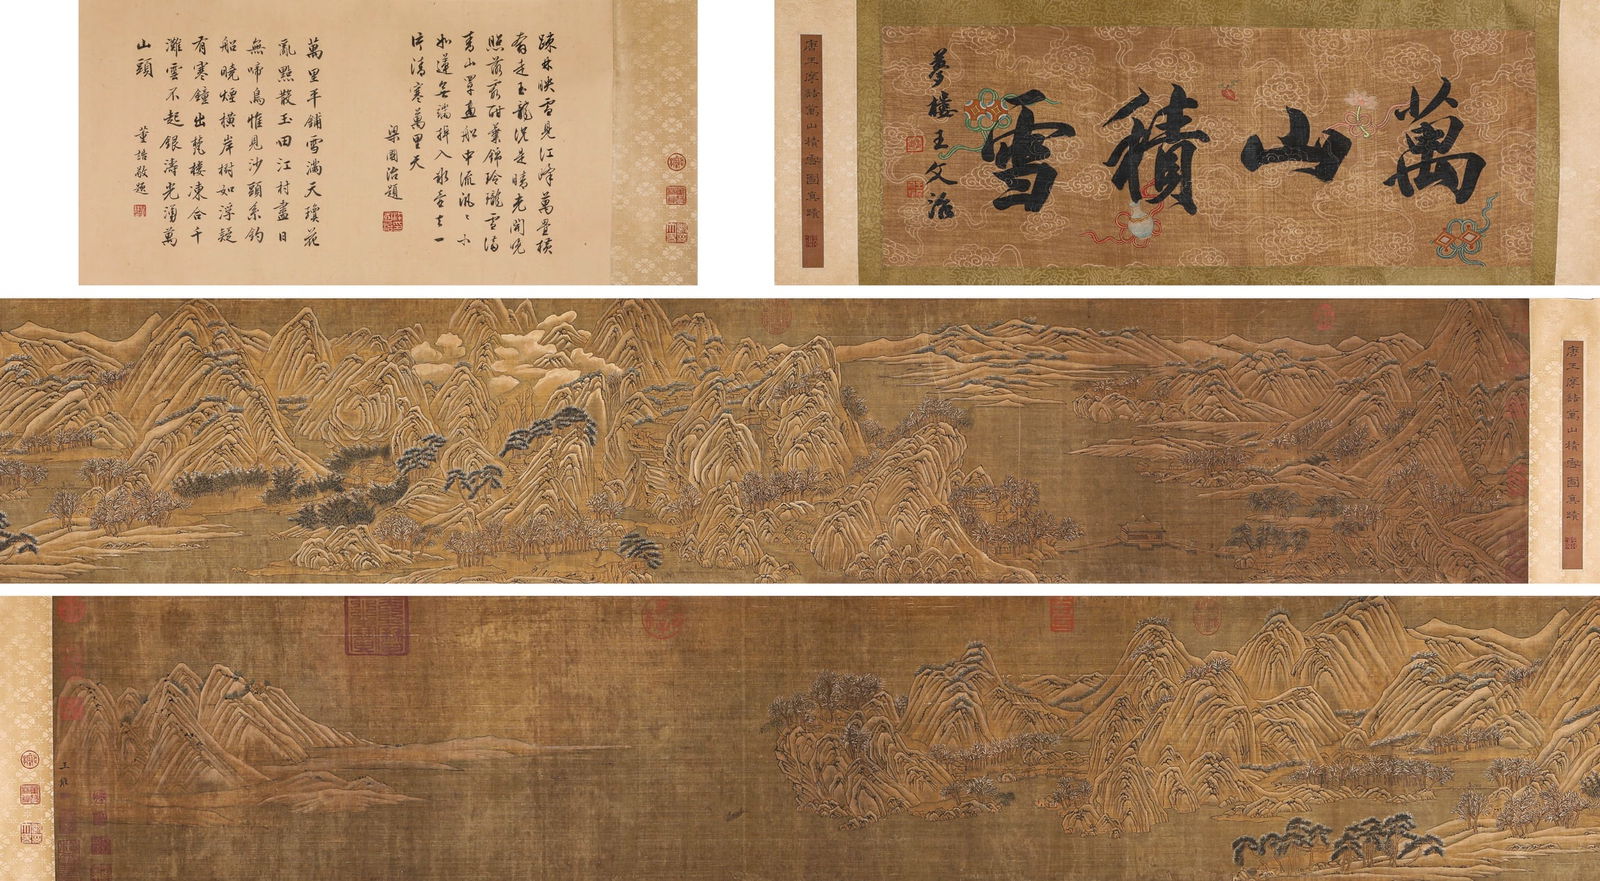 萬山積雪
夢樓王文治
唐王摩詰萬山積雪圖真蹟
疎林映雪見江峰萬疊橫
看走玉龍況是晴光開晚
照落霞酣葉錦玲瓏雪滿
青山罩畫船中流汎汎小
如蓮無端揖入冰壺去一
片清寒萬里天
梁國治題
萬里平鋪雪滿天瓊花
亂點散玉田江村盡日
無啼鳥惟見沙頭系釣
船曉煙橫岸樹如浮疑
有寒鐘出梵樓凍合千
灘雲不起銀濤光湧萬
山頭
董誥敬題
唐王摩詰萬山積雪圖真蹟
王維